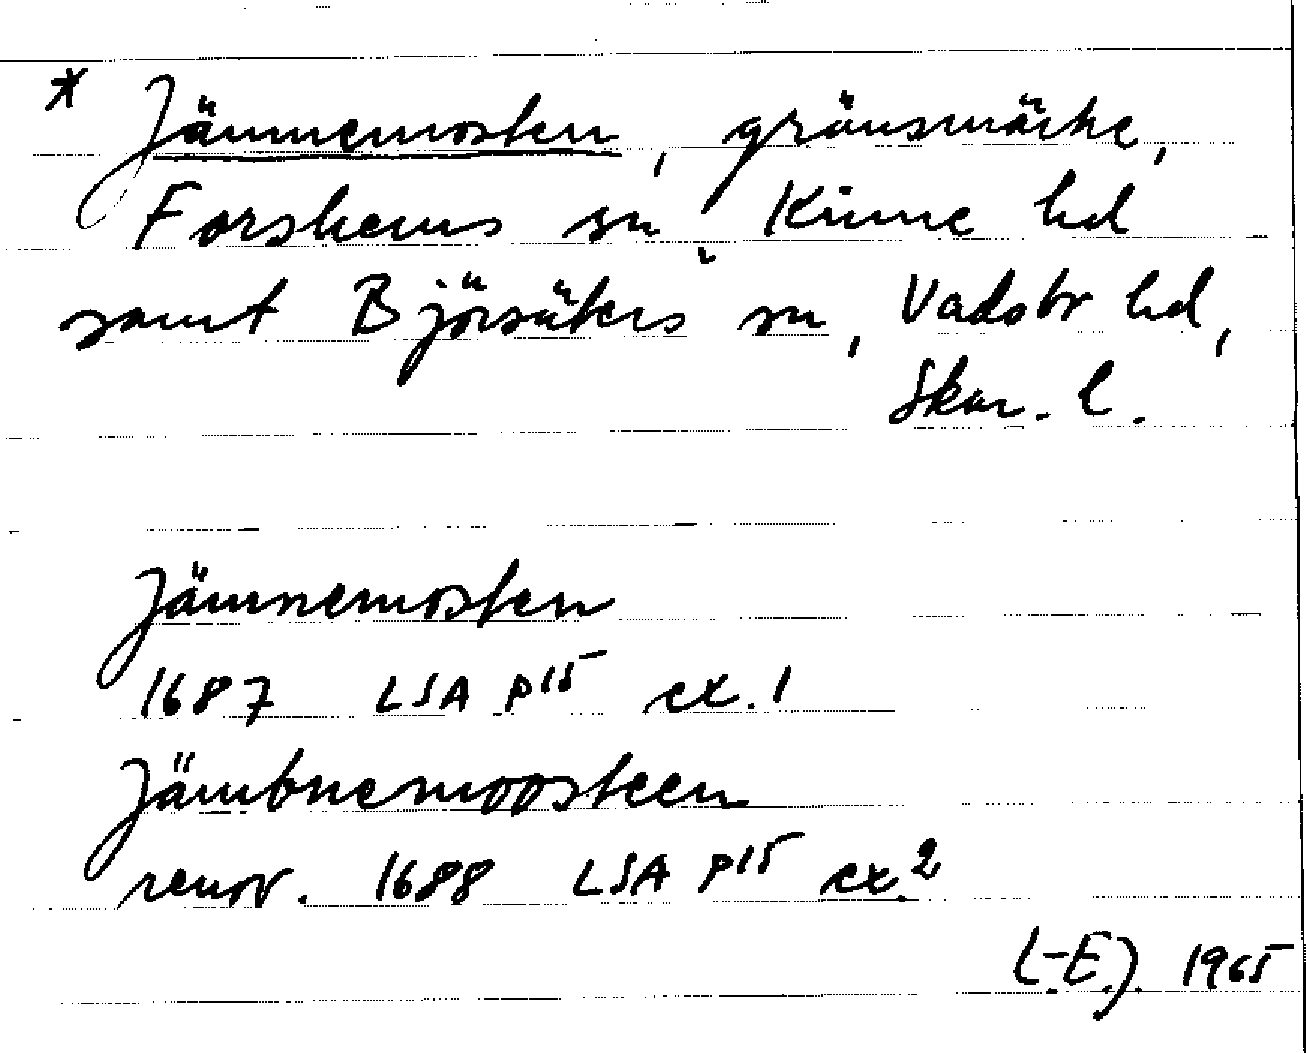 * Jämnemosten, gränsmärke,
Forshems sn, Kinne hd
samt Björsäters sn, Vadsbr hd,
Skar. l.
Jämnemosten
1687 LSA P15 ex. 1
Jämbnemoosteen
renov. 1688 LSA P15 ex. 2
L-E.J. 1965